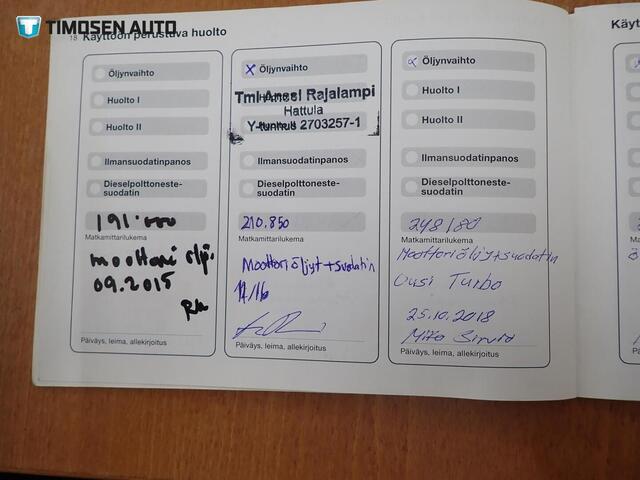 TIMOSEN AUTO
18 Käyttöön perustuva huolto
Öljynvaihto
Huolto I
Huolto II
Ilmansuodatinpanos
Dieselpolttoneste-
suodatin
191.000
Matkamittarilukema
moottori öljy.
09.2015
Päiväys, leima, allekirjoitus
x Öljynvaihto
Tmi Anssi Rajalampi
Hattula
Y-tunnus 2703257-1
Ilmansuodatinpanos
Dieselpolttoneste-
suodatin
210.850
Matkamittarilukema
Moottoriöljyt+suodatin
11/16
Päiväys, leima, allekirjoitus
x Öljynvaihto
Huolto I
Huolto II
Ilmansuodatinpanos
Dieselpolttoneste-
suodatin
248180
Matkamittarilukema
Moottoriöljyt+suodatin
Uusi Turbo
25.10.2018
Päiväys, leima, allekirjoitus
Käyt